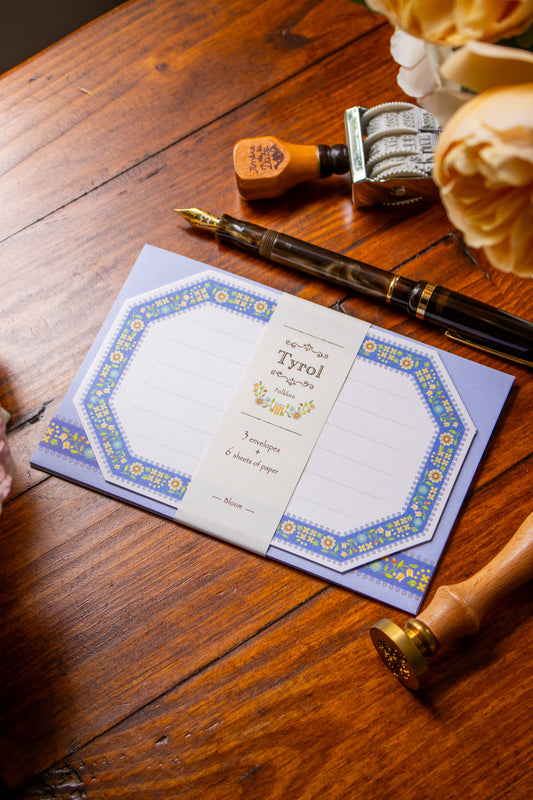 Tyrol
Folklore
3 envelopes
+
6 sheets of paper
— Bloom —